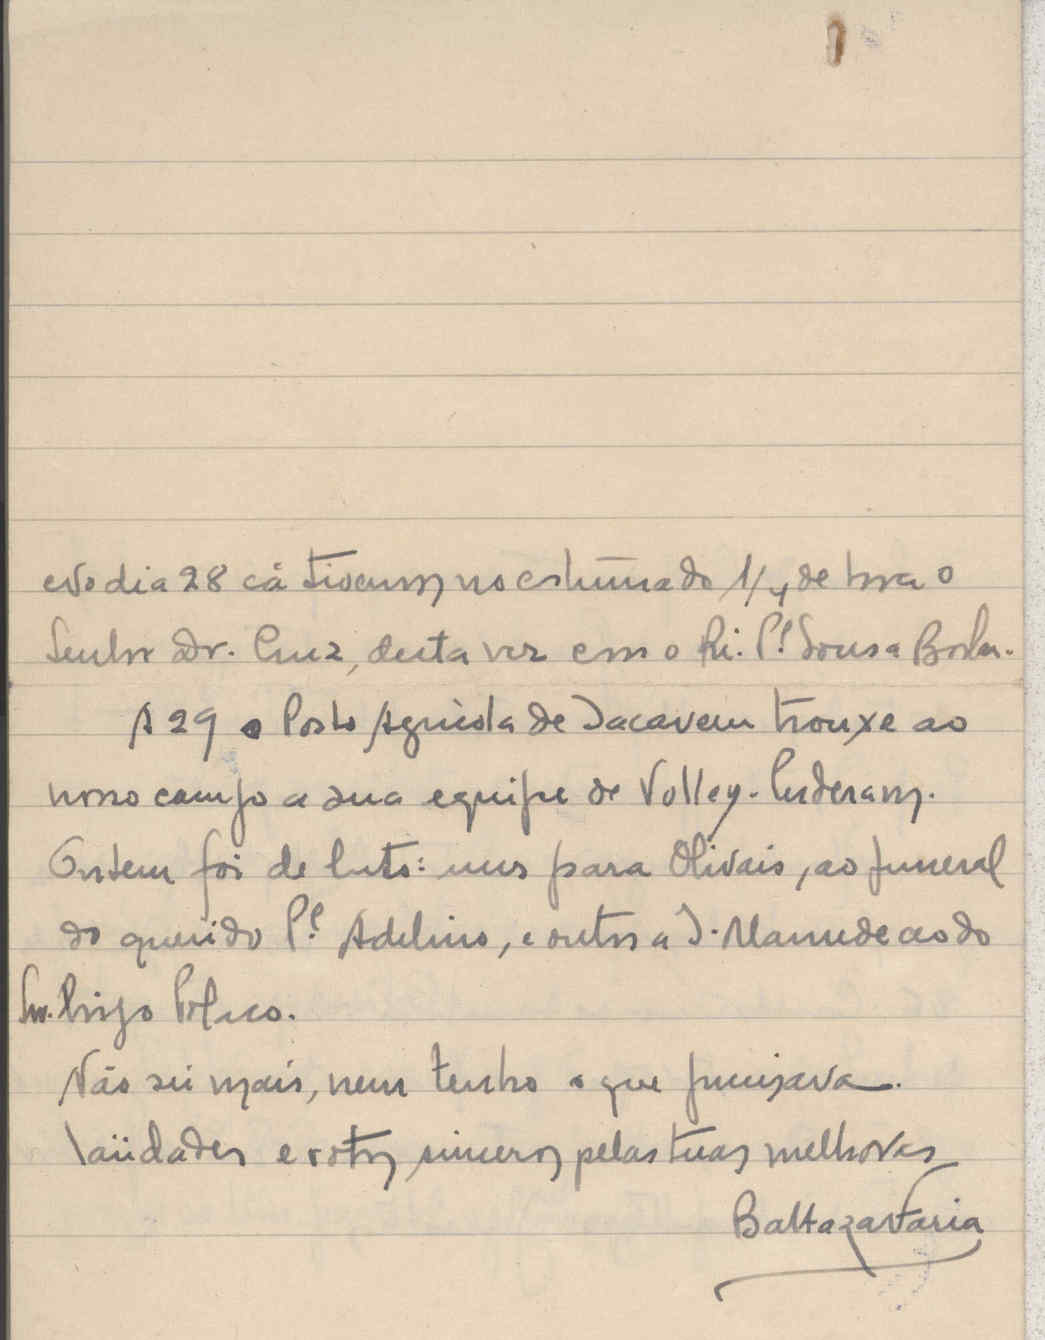 No dia 28 cá tivemos no costumado 1/4 de hora o
Senhor Dr. Cruz, desta vez com o Pe. Sousa
A 29 o Posto Agrícola de Sacavem trouxe ao
nosso campo a sua equipe de Volley. Perderam.
Ontem foi de luto: uns para Olivais, ao funeral
do querido Pe. Adelino, e outros a S. Mamede ao do
Snr. Prior
Não sei mais, nem tenho o que precisava.
Saüdades e votos sinceros pelas tuas melhoras
Baltazar Faria